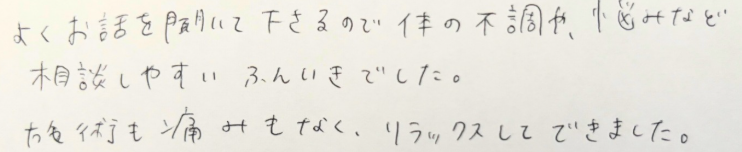 よくお話を聞いて下さるので体の不調や、悩みなど
相談しやすいふんいきでした。
施術も痛みもなく、リラックスしてできました。